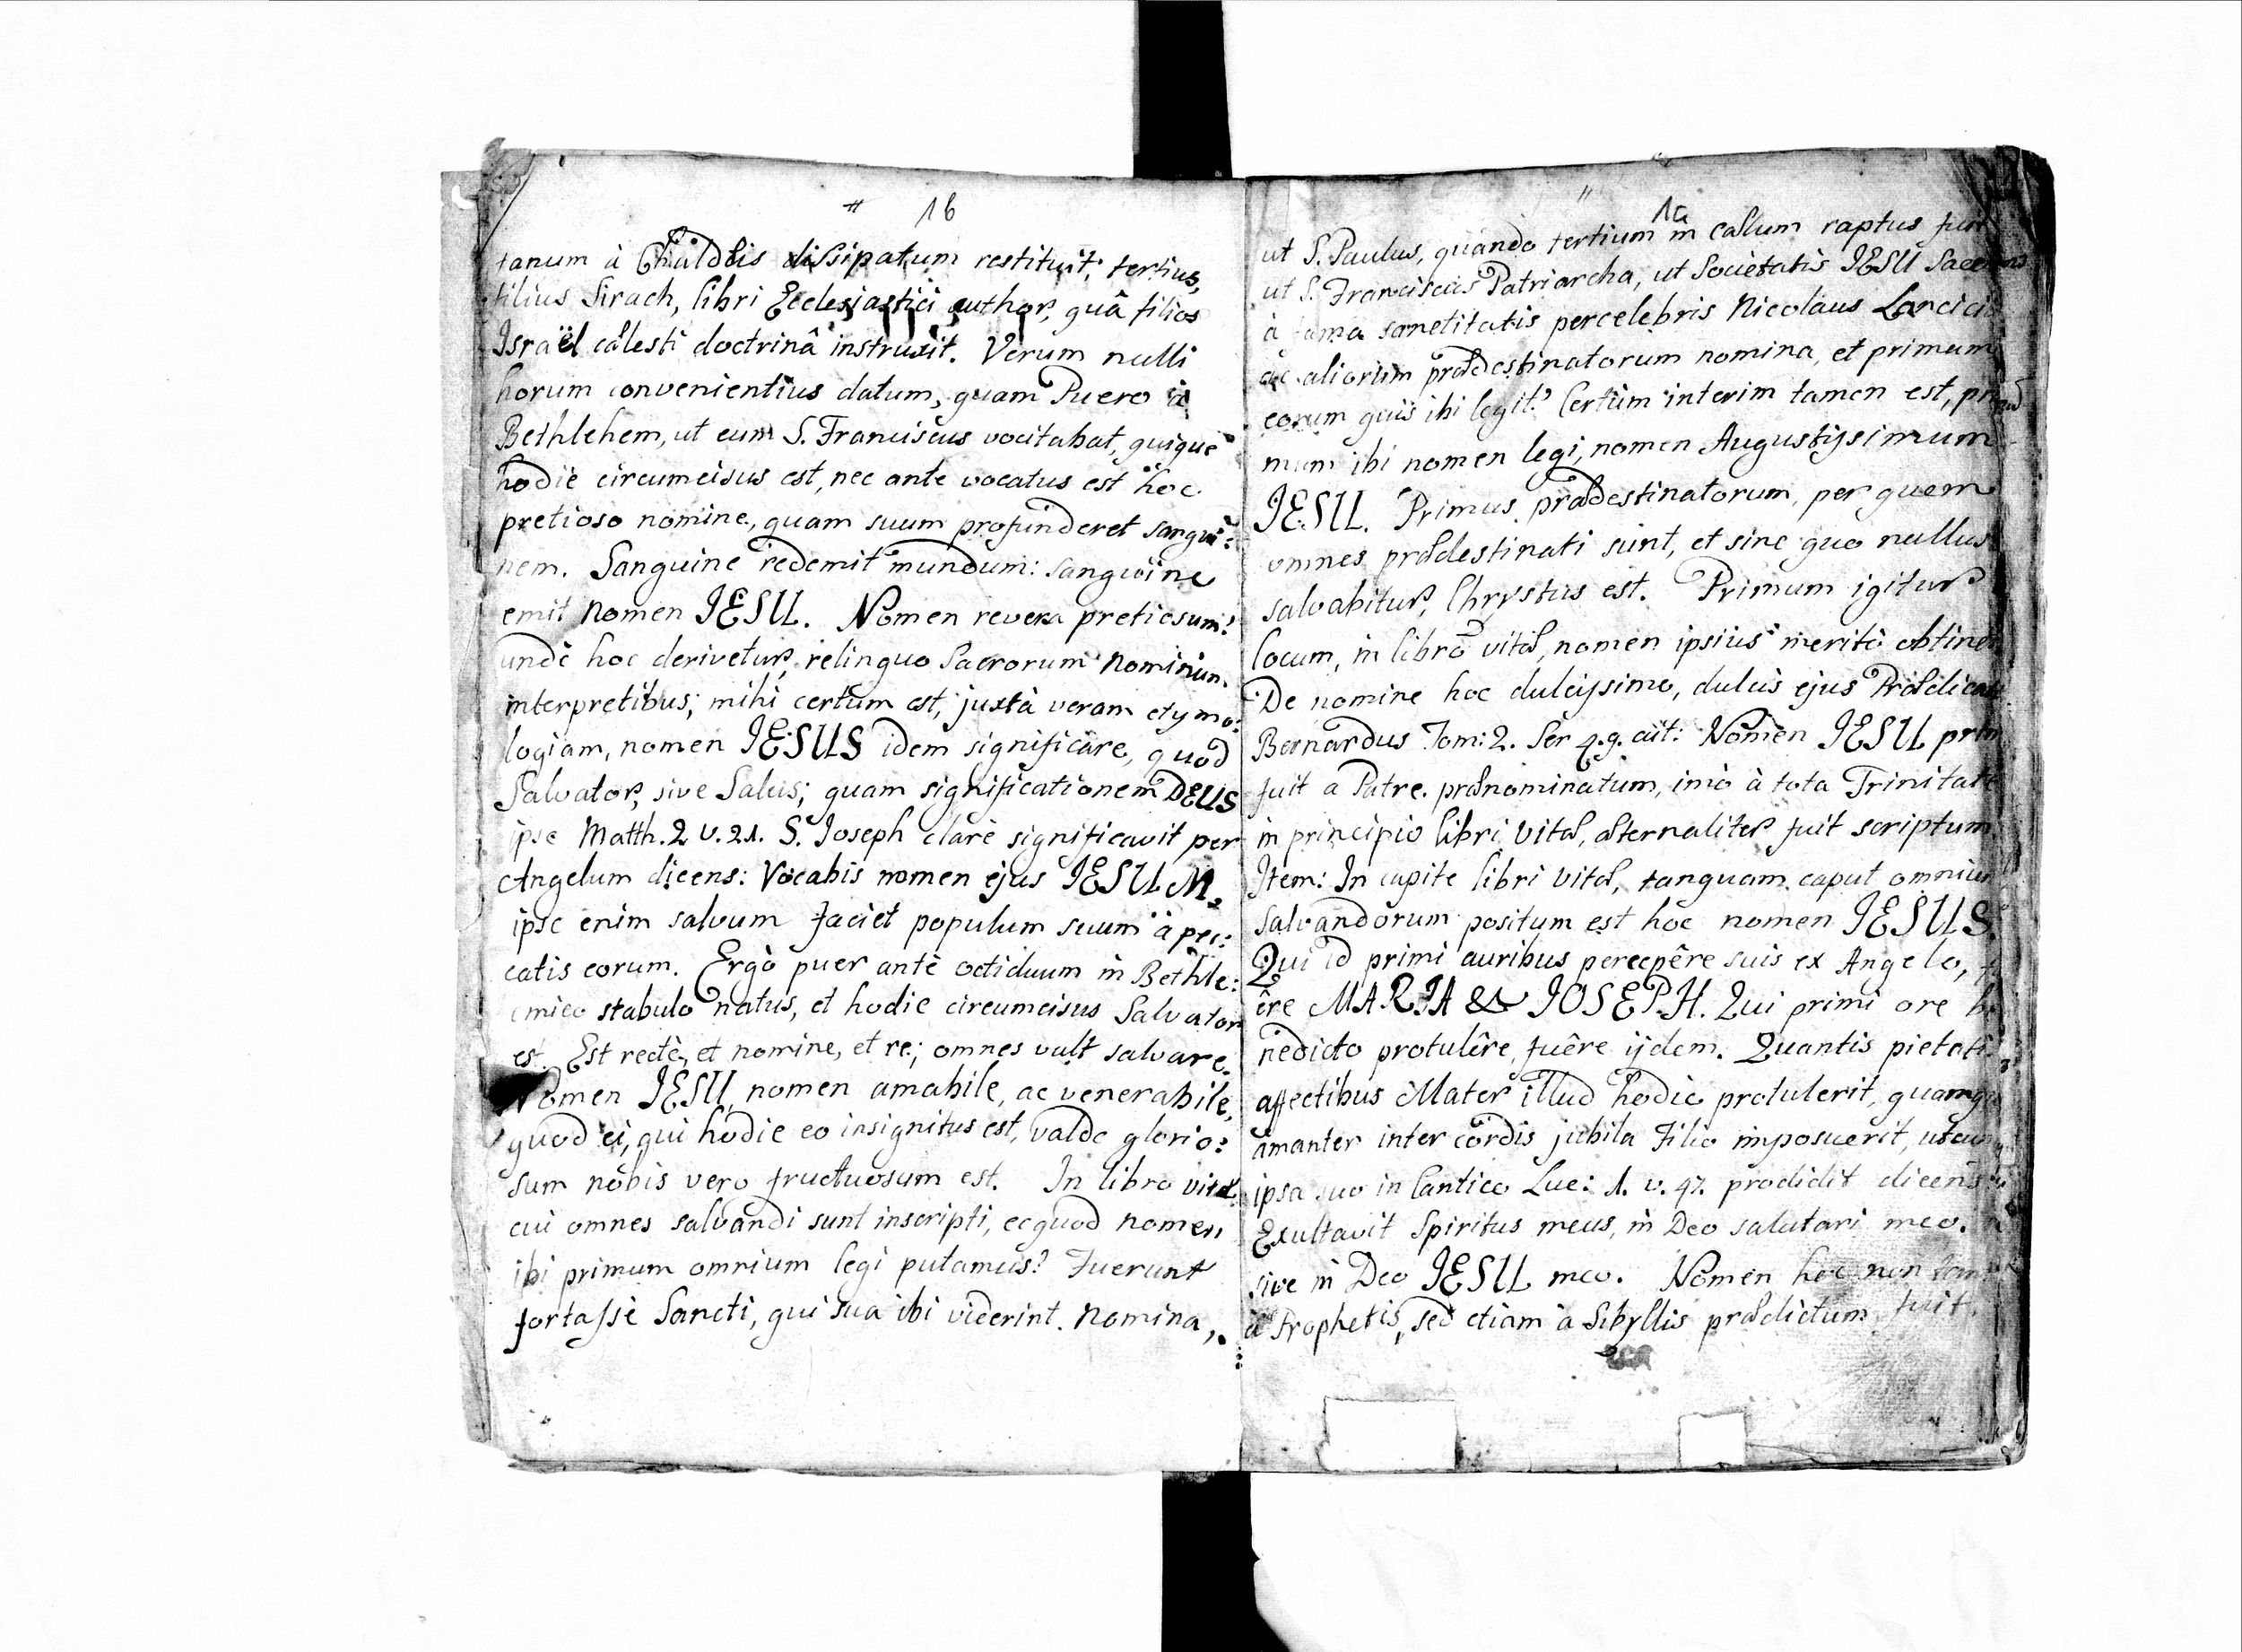 # 1b
tanum à Chaldæis dissipatum restituit; tertius,
filius Sirach, libri Ecclesiastici author, quâ filios
Israël cælesti doctrinâ instruxit. Verum nulli
horum convenientius datum, quam Puero
Bethlehem, ut eum S. Franciscus vocitabat, quique
hodie circumcisus est, nec ante vocatus est hoc
pretioso nomine, quam suum profunderet sangvi:
nem. Sanguine redemit mundum: sangvine
emit nomen IESU. Nomen revera pretiosum!
unde hoc derivetur, relinquo Sacrorum Nominum
interpretibus; mihi certum est, juxtà veram etymo:
logiam, nomen IESUS idem significare, quod
Salvator, sive Salus; quam significationem DEUS
ipse Matth. 2 v. 21. S. Ioseph clarè significavit per
Angelum dicens: Vocabis nomen ejus IESUM,
ipse enim salvum faciet populum suum à pec:
catis eorum. Ergò puer antè octiduum in Bethle:
emico stabulo natus, et hodie circumcisus Salvator
est. Est rectè, et nomine, et re; omnes vult salvare.
Nomen IESU, nomen amabile, ac venerabile,
quod ei, qui hodie eo insignitus est, valde glorio:
sum nobis vero fructuosum est. In libro vitæ
cui omnes salvandi sunt inscripti, ecquod nomen
ibi primum omnium legi putamus? Fuerunt
fortasse Sancti, qui sua ibi viderint nomina,
1c
ut S. Paulus, quando tertium in cælum raptus fuit
ut S. Franciscus Patriarcha, ut Societatis IESU
à fama sanctitatis percelebris Nicolaus
ac aliorum prædestinatorum nomina, et primum
eorum quis ibi legit? Certum interim tamen est,
mum ibi nomen legi, nomen Augustissimum
IESU. Primus prædestinatorum, per quem
omnes prædestinati sunt, et sine quo nullus
salvabitur, Chrystus est. Primum igitur
locum, in libro vitæ, nomen ipsius merito
De nomine hoc dulcissimo, dulcis ejus
Bernardus Tom: 2. Ser 49. ait: Nomen IESU
fuit a Patre prænominatum, imò à tota Trinitate
in principio libri Vitæ, æternaliter fuit scriptum
Item: In capite libri Vitæ, tanquam caput omnium
salvandorum positum est hoc nomen IESUS.
Qui id primi auribus percepêre suis ex Angelo,
êre MARIA & IOSEPH. Qui primi ore
nedicto protulêre, fuêre ijdem. Quantis
affectibus Mater illud hodie protulerit,
amanter inter cordis jubila Filio imposuerit,
ipsa suo in Cantico Luc: 1. v. 47. prodidit dicens
Exultavit Spiritus meus, in Deo salutari meo.
sive in Deo IESU meo. Nomen hoc non
à Prophetis, sed etiam à Sibyllis prædictum fuit.